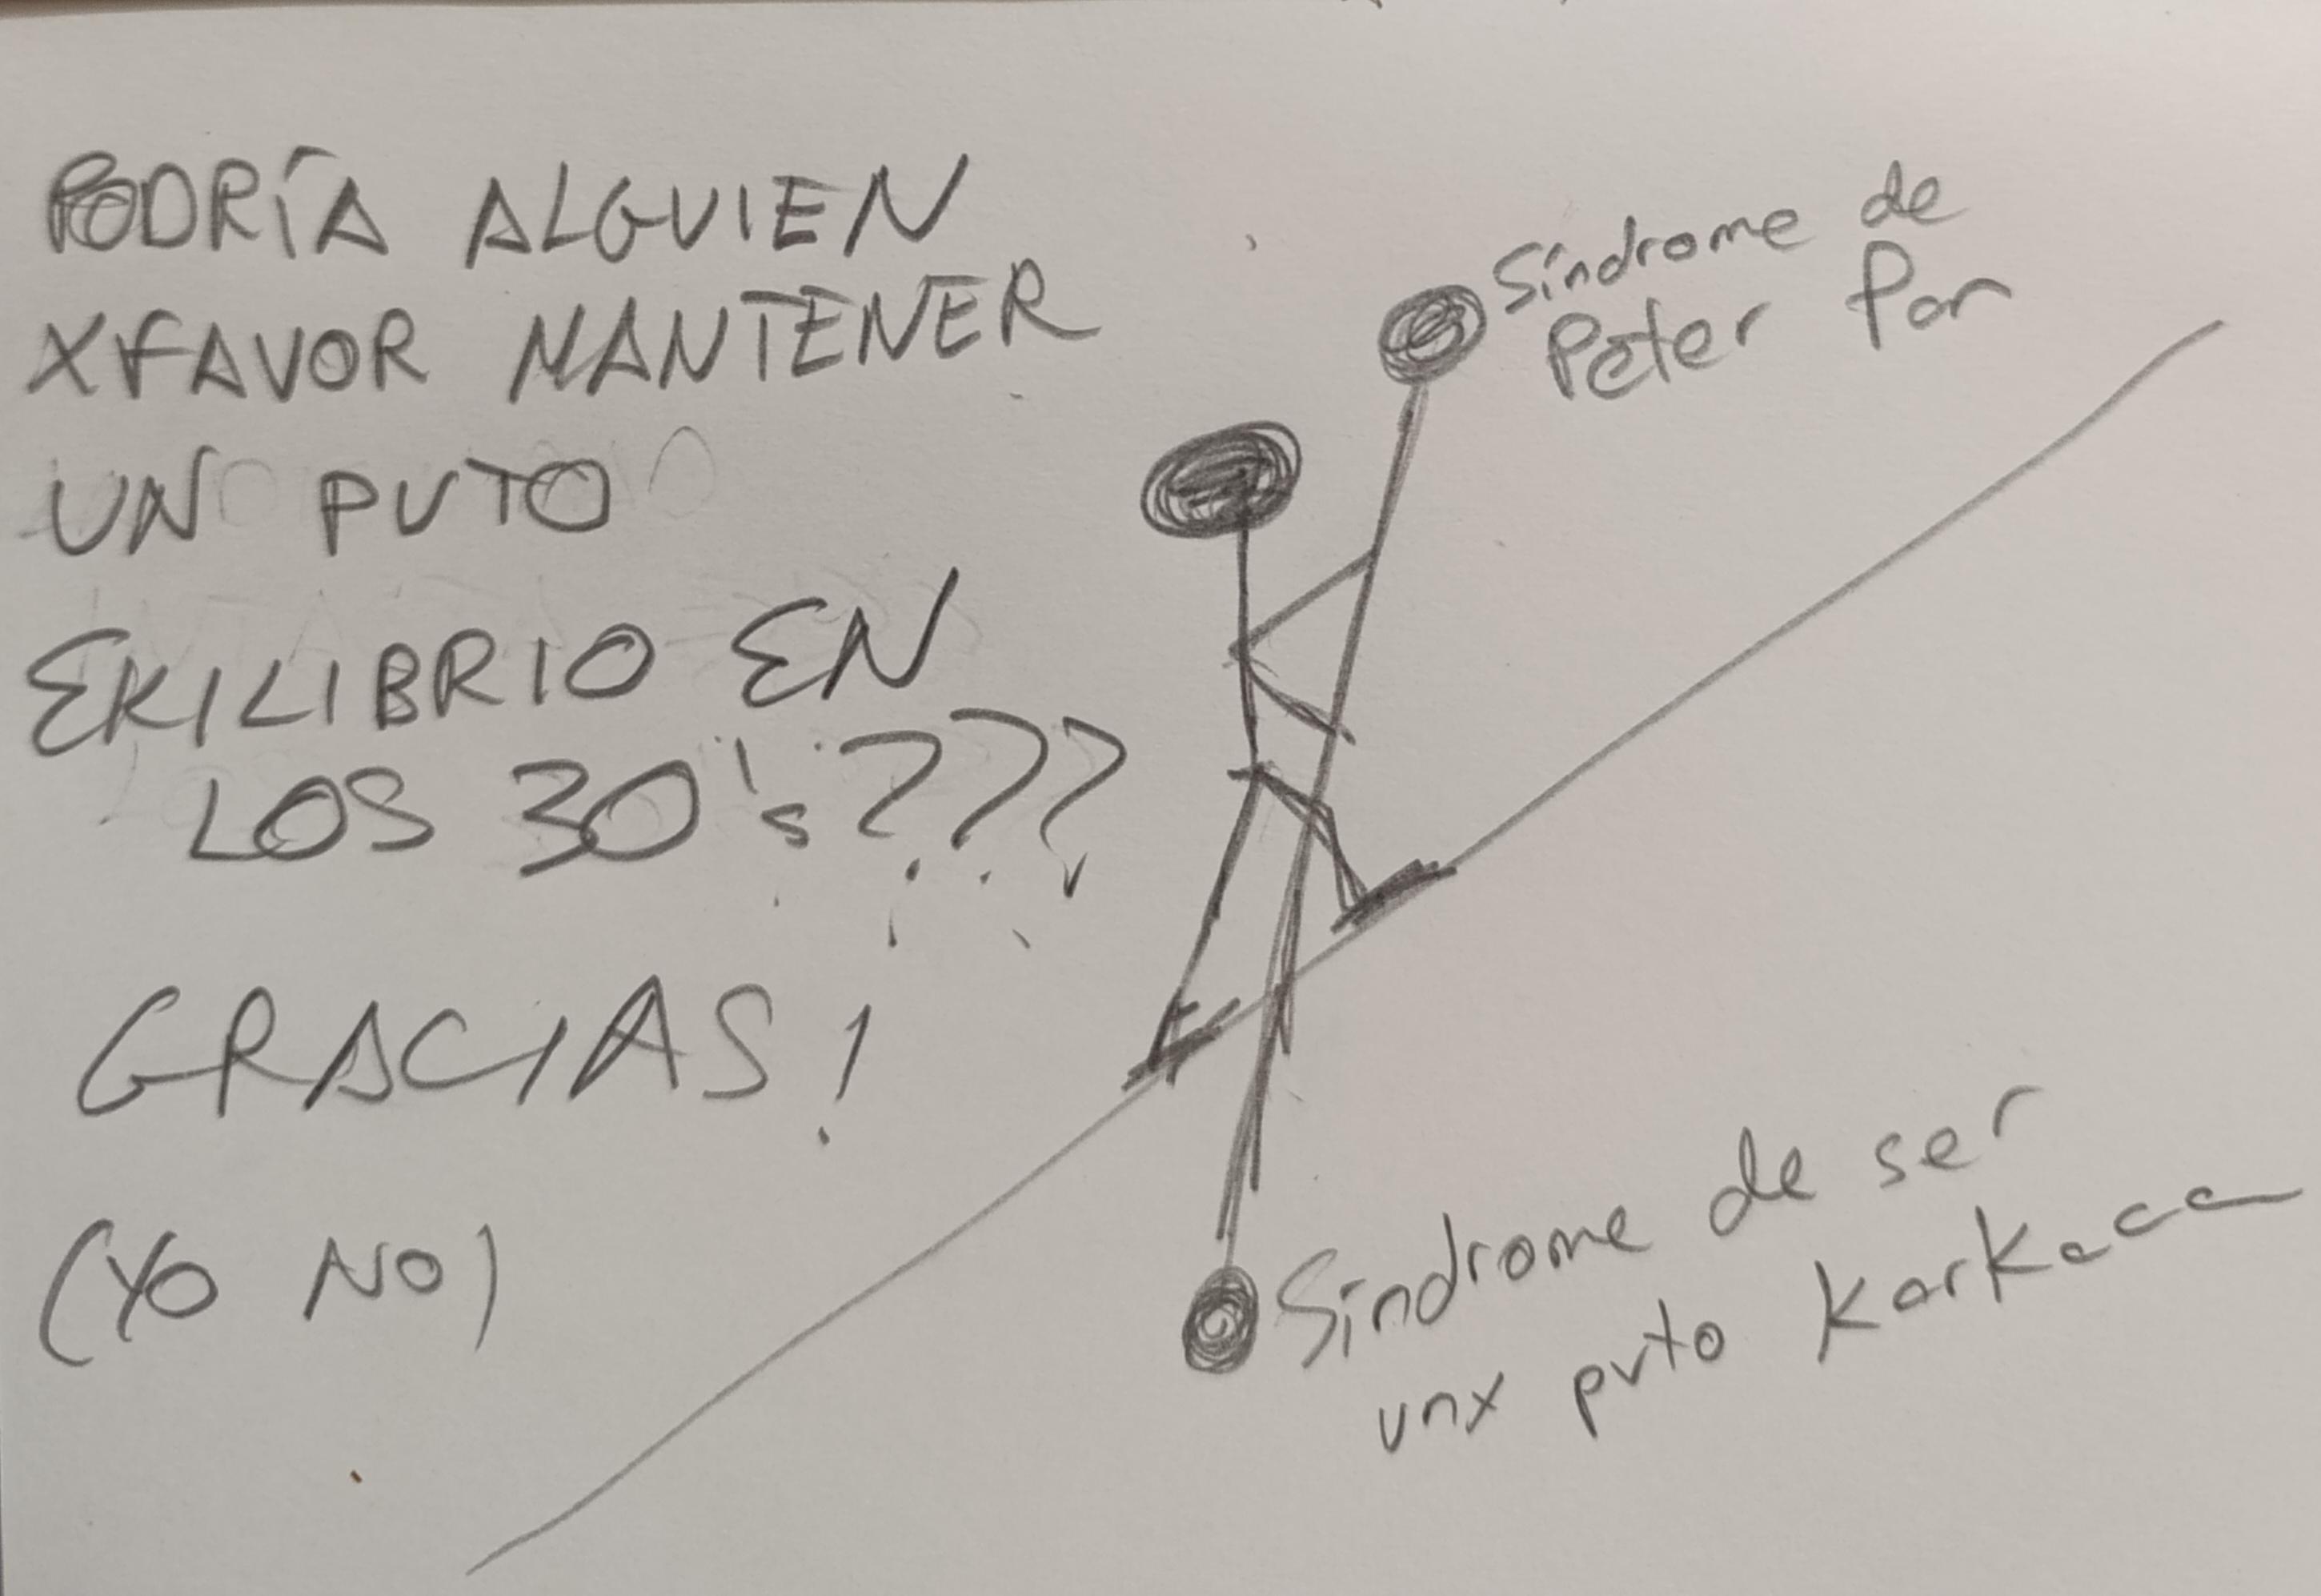 PODRÍA ALGUIEN
XFAVOR MANTENER
UN PUTO
EKILIBRIO EN
LOS 30's???
GRACIAS!
(YO NO)
Síndrome de
Peter Pan
Síndrome de ser
unx puto Karkaca